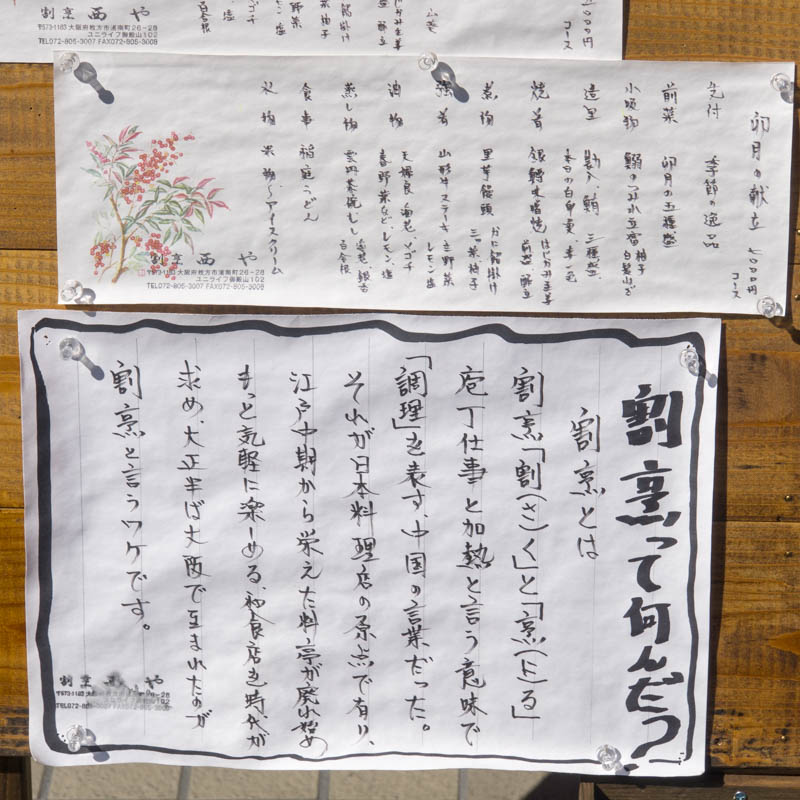 〇〇〇円
コース
割烹 西 や
〒573-1163 大阪府枚方市渚南町26-28
ユニライフ御殿山102
TEL072-805-3007 FAX072-805-3008
卯月の献立 七〇〇〇円
コース
先付 季節の逸品
前菜 卯月の五種盛
小吸物 鰯のつみれ豆富 柚子
白髪ねぎ
造里 勘八、鮪 三種盛
焼肴 銀鱈味噌焼 はじかみ生姜
煮物 里芋饅頭 かに餡掛け
三つ葉 柚子
強肴 山形牛ステーキ 生野菜
レモン 塩
油物 天婦良 海老、メゴチ
春野菜など レモン、塩
蒸し物 雲丹茶碗むし 海老、銀杏
百合根
食事 稲庭うどん
水物 果物〜アイスクリーム
割烹 西 や
〒573-1163 大阪府枚方市渚南町26-28
ユニライフ御殿山102
TEL072-805-3007 FAX072-805-3008
割烹って何んだ?
割烹とは
割烹「割(さ)く」と「烹(に)る」
庖丁仕事と加熱と言う意味で
「調理」を表す、中国の言葉だった。
それが日本料理店の原点で有り、
江戸中期から栄えた料亭が廃れ始め
もっと気軽に楽しめる、和食店を時代が
求め、大正半ば大阪で生まれたのが
割烹と言うワケです。
割烹 や
〒573-1163 大阪府枚方市渚南町26-28
ユニライフ御殿山102
TEL072-805-3007 FAX072-805-3008